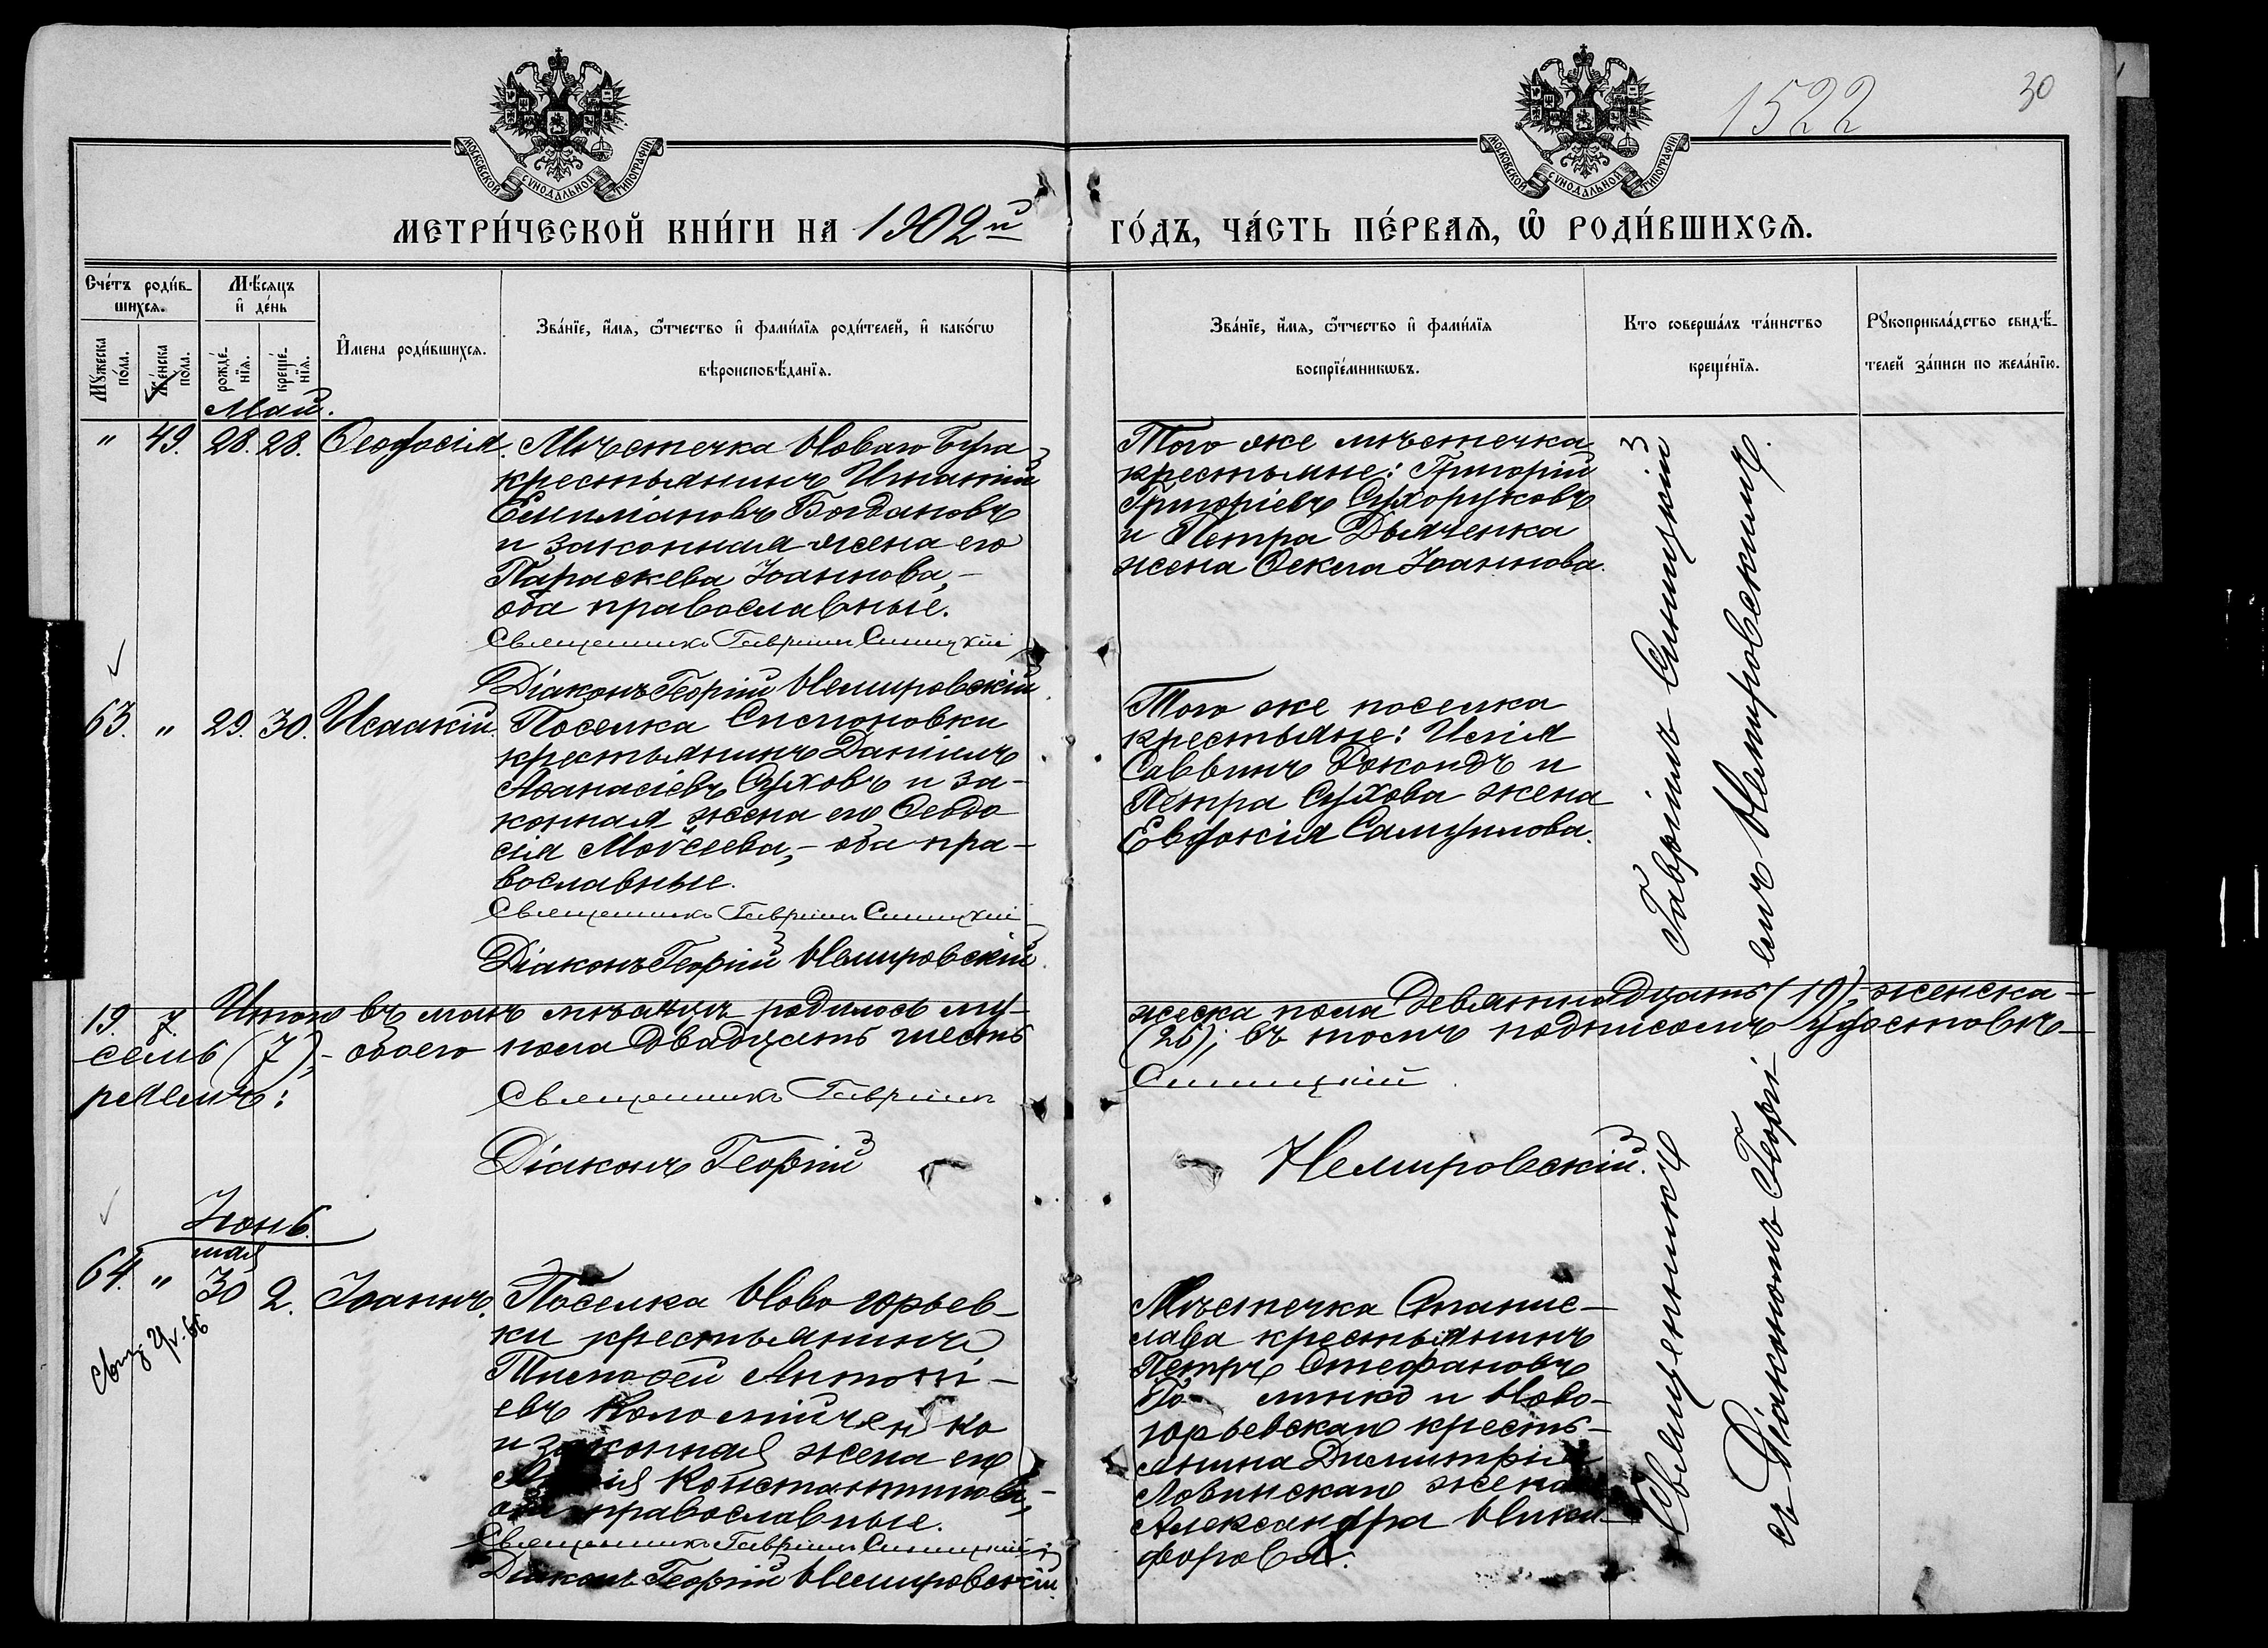 1522
30
МОСКОВСКОЙ СѴНОДАЛЬНОЙ ТИПОГРАФІИ
МОСКОВСКОЙ СѴНОДАЛЬНОЙ ТИПОГРАФІИ
МЕТРИ́ЧЕСКОЙ КНИ́ГИ НА 1902й
ГО́ДЪ, ЧА́СТЬ ПЕ́РВАѦ, Ѡ҆ РОДИ́ВШИХСѦ.
Сче́тъ роди́в-
шихсѧ.
Мѣ́сѧцъ
и҆ де́нь
Мꙋ́жеска по́ла.
Же́нска по́ла.
рожде́-нїѧ.
креще́-нїѧ.
И҆мена̀ роди́вшихсѧ.
Зва́нїе, и҆́мѧ, ѻ҆́тчество и҆ фами́лїѧ роди́телей, и҆ како́гѡ
вѣроисповѣ́данїѧ.
Зва́нїе, и҆́мѧ, ѻ҆́тчество и҆ фами́лїѧ
воспрїе́мникѡвъ.
Кто̀ соверша́лъ та́инство
креще́нїѧ.
Рꙋкоприкла́дство свидѣ́-
телей за́писи по жела́нїю.
Май.
" 49. 28. 28. Ѳеодосія.
Мѣстечка Новаго Буга
крестьянинъ Игнатій
Емиліановъ Богдановъ
и законная жена его
Параскева Іоаннова,-
оба православные.
Священникъ Гавріилъ Синицкій
Діаконъ Георгій Немировскій.
Того же мѣстечка
крестьяне: Григорій
Григоріевъ Сухоруковъ
и Петра Дьяченка
жена Ѳекла Іоаннова.
63. " 29. 30. Исаакій.
Поселка Симоновки
крестьянинъ Даніилъ
Аѳанасіевъ Суховъ и за-
конная жена его Ѳеодо
сія Моѵсеева,- оба пра-
вославные.
Священникъ Гавріилъ Синицкій
Діаконъ Георгій Немировскій.
Того же поселка
крестьяне: Илія
Саввинъ и
Петра Сухова жена
Евдокія Самуилова.
19. 7. Итого въ маѣ мѣсяцѣ родилось му-
жеска пола девятнадцать (19), женска-
семь (7),- обоего пола двадцать шесть
(26); въ томъ подписомъ удостовѣ-
ряемъ:
Священникъ Гавріилъ
Синицкій
Діаконъ Георгій
Немировскій.
Іюнь.
мая
64. " 30 2. Іоаннъ.
Поселка Ново юрьев-
ки крестьянинъ
Тимоѳей Антоні-
евъ Коломійченко
и законная жена его
Константинова,-
оба православные.
Священникъ Гавріилъ Синицкій
Діаконъ Георгій Немировскій.
Мѣстечка Станис-
лава крестьянинъ
Петръ Стефановъ
и Ново-
юрьевскаго кресть-
янина Димитрія
Ловинскаго жена
Александра Ники-
форова.
Священникъ Гавріилъ Синицкій
съ Діакономъ Георгі-
емъ Немировскимъ.